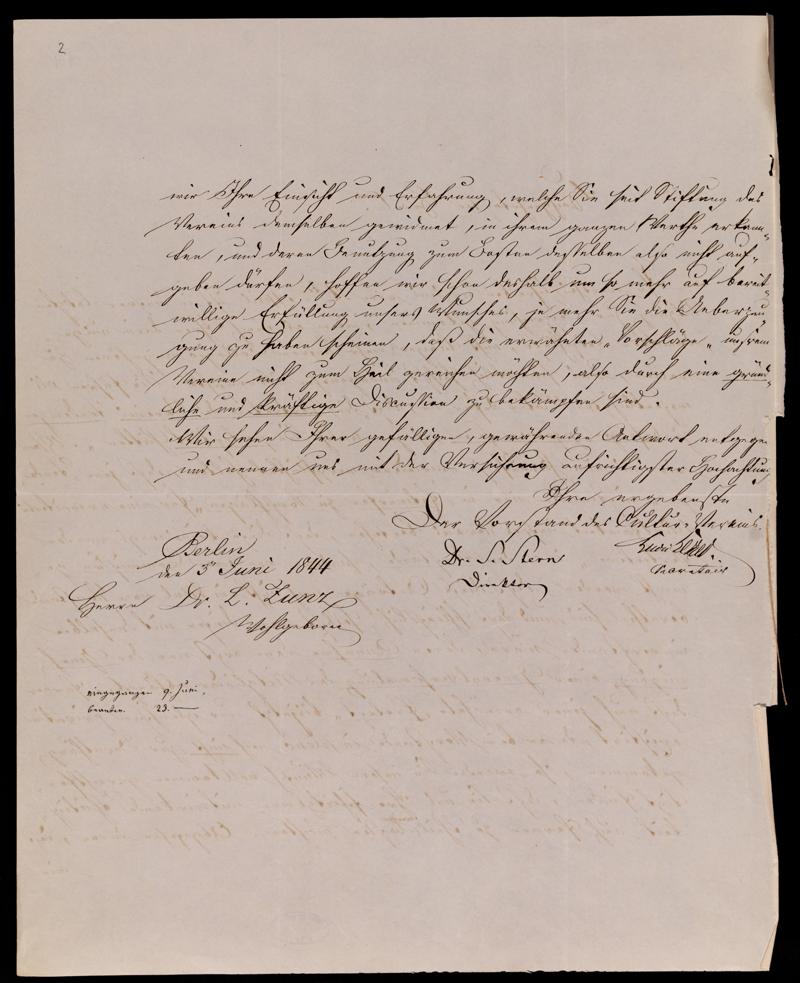 2
wir Ihre Einsicht und Erfahrung, welche Sie seit Stiftung des
Vereins demselben gewidmet, in ihrem ganzen Werthe erkann-
ten, und deren Benutzung zum Besten desselben also nicht auf-
geben dürfen, hoffen wir schon deshalb um so mehr auf bereit-
willige Erfüllung unsers Wunsches, je mehr Sie die Ueberzeu
gung zu haben scheinen, daß die erwähnten „Vorschläge" unserm
Vereine nicht zum Heil gereichen möchten, also durch eine gründ-
liche und kräftige Discussion zu bekämpfen sind.
Wir sehen Ihrer gefälligen, gewährenden Antwort entgegen
und nennen uns mit der Versicherung aufrichtigster Hochachtung
Ihre ergebenste
Der Vorstand des Cultur-Vereins.
Berlin
den 5 Juni 1844
Dr. S. Stern
Direktor
Secretair
Herrn Dr. L. Zunz
Wohlgeboren
eingegangen 9. Juni.
beantw. 23. —